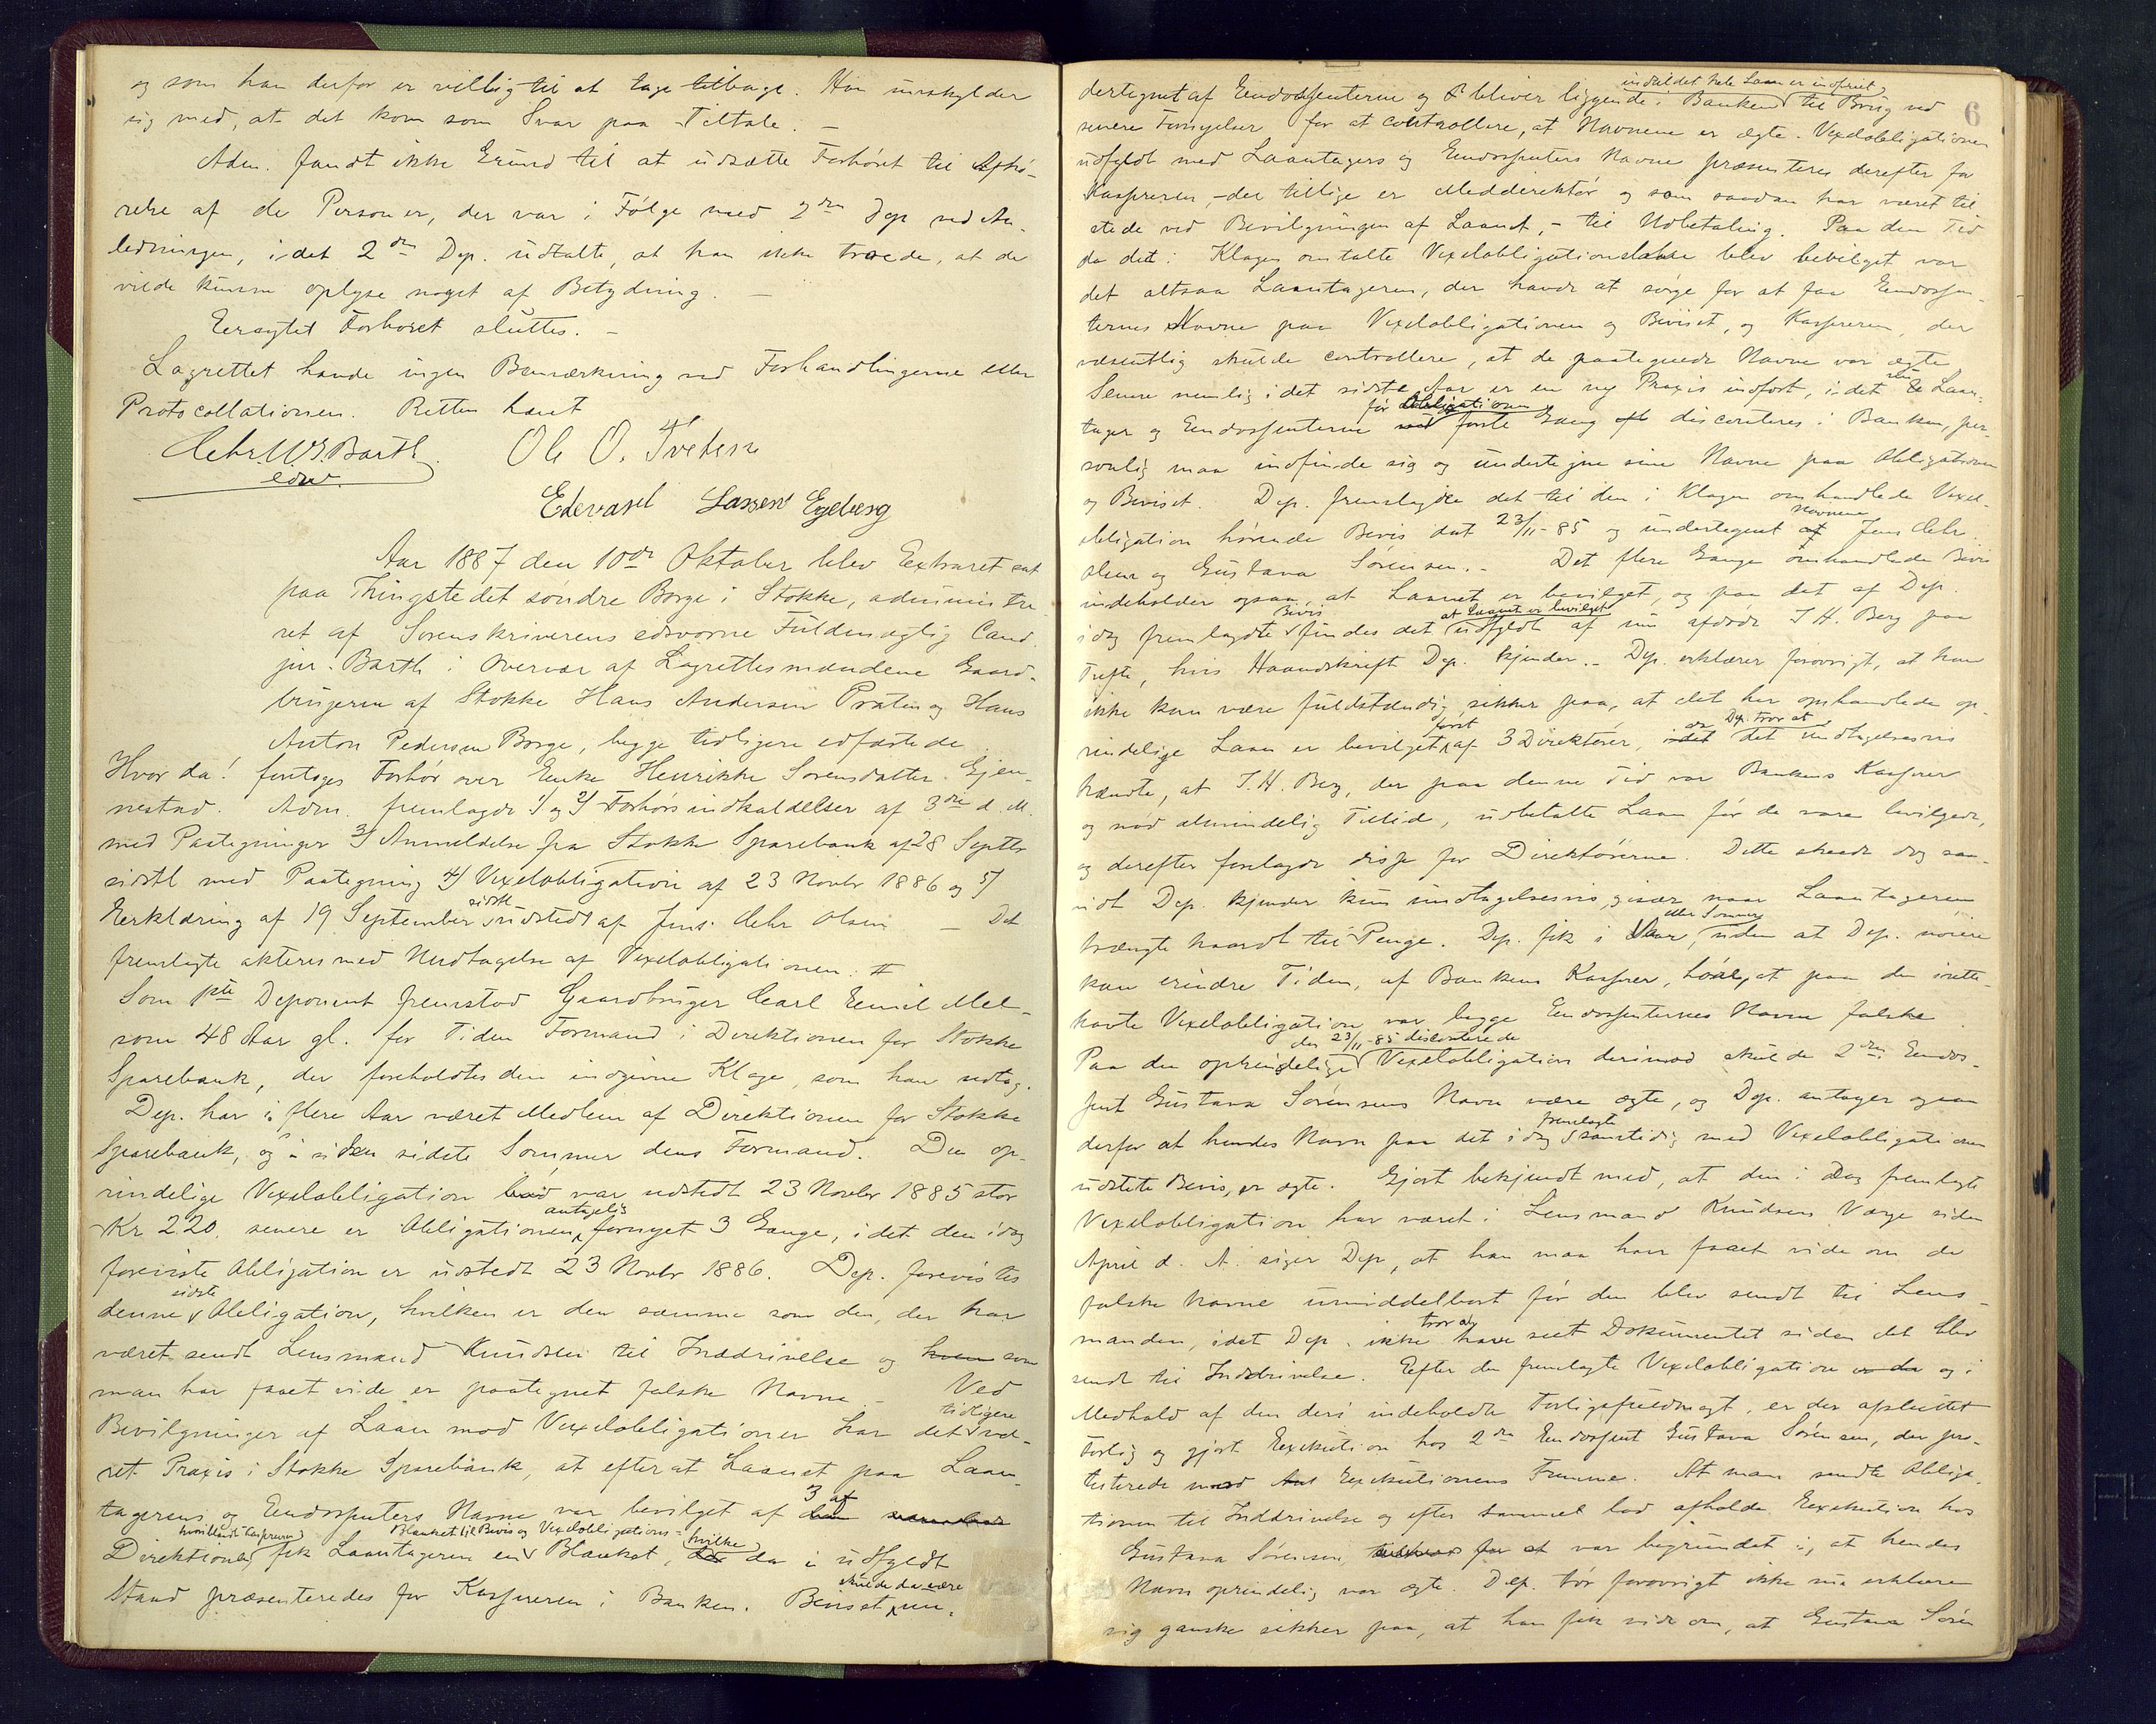 og som han derfor er villig til at tage tilbage. Hun undskylder
sig med, at det kom som Svar paa Tiltale. —
Adm. fandt ikke Grund til at udsætte Forhøret til Afhø-
relse af de Personer, der var i Følge med 2den Dep ved An-
ledningen, idet 2den Dep. udtalte, at han ikke troede, at de
vilde kunne oplyse noget af Betydning. —
Eragtet Forhøret sluttes. —
Lagrettet havde ingen Bemærkning ved Forhandlingerne eller
Protocollationen. Retten hævet
Chr. W. S. Barth Ole O. Tvetene
edsv.
Edevard Larsen Egeberg
Aar 1887 den 10de Oktober blev Extraret sat
paa Thingstedet søndre Borge i Stokke, administre-
ret af Sorenskriverens edsvorne Fuldmægtig Cand.
jur. Barth i Overvær af Lagrettesmændene Gaard-
brugerne af Stokke Hans Andersen Præten og Hans
Anton Pedersen Borge, begge tidligere edfæstede.
Hvor da! foretoges Forhør over Enke Henrikke Sørensdatter Gjen-
nestad. Adm. fremlagde 1) og 2) Forhørsindkaldelser af 3die d. M.
med Paategninger 3) Anmeldelse fra Stokke Sparebank af 28 Septbr
sidstl med Paategning 4) Vexelobligation af 23 Novbr 1886 og 5)
Erklæring af 19 September sidstl udstedt af Jens Chr Olsen — Det
fremlagte akteres med Undtagelse af Vexelobligationen. #
Som 1ste Deponent fremstod Gaardbruger Carl Emil Mel-
som 48 Aar gl. for Tiden Formand i Direktionen for Stokke
Sparebank, der foreholdtes den indgivne Klage, som han vedtog.
Dep. har i flere Aar været Medlem af Direktionen for Stokke
Sparebank, og siden sidste Sommer dens Formand. Den op-
rindelige Vexelobligation var udstedt 23 Novbr 1885 stor
Kr 220, senere er Obligationen antagelig fornyet 3 Gange, idet den idag
foreviste Obligation er udstedt 23 Novbr 1886. Dep. forevistes
denne sidste Obligation, hvilken er den samme som den, der har
været sendt Lensmand Knudsen til Inddrivelse og hvem som
man har faaet vide er paategnet falske Navne — Ved
Bevilgninger af Laan mod Vexelobligationer har det tidligere væ-
ret Praxis i Stokke Sparebank, at efterat Laanet paa Laan-
tagerens og Endossenters Navne var bevilget af 3 af
Direktionen, hvoriblandt Kassereren, fik Laantageren en Blanket til Bevis og Vexelobligations- Blanket, hvilke da i udfyldt
Stand præsenteredes for Kassereren i Banken. Beviset skulde da være un-
6
dertegnet af Endossenterne og bliver liggende i Banken indtil det hele Laan er indfriet til Brug ved
senere Fornyelser for at controllere, at Navnene er ægte. Vexelobligationen
udfyldt med Laantagers og Endossenters Navne præsenteres derefter for
Kassereren, — der tillige er Meddirektør og som saadan har været til
stede ved Bevilgningen af Laanet, — til Udbetaling. Paa den Tid
da det i Klagen omtalte Vexelobligationslaan blev bevilget var
det altsaa Laantageren, der havde at sørge for at faa Endossen-
ternes Navne paa Vexelobligationen og Beviset, og Kassereren, der
væsentlig skulde controllere, at de paategnede Navne var ægte
Senere nemlig i det sidste Aar er en ny Praxis indført, idet nu Laan-
tager og Endossenterne før Obligationen ved første Gang discenteres i Banken, per-
sonlig maa indfinde sig og undertegne sine Navne paa Obligationen
og Beviset. Dep. fremlagde det til den i Klagen omhandlede Vexel-
obligation hørende Bevis dat 23/11-85 og undertegnet Navnene af Jens Chr.
Olsen og Gustava Sörensen. — Det flere Gange omhandlede Bevis
indeholder ogsaa, at Laanet er bevilget, og paa det af Dep.
idag fremlagdte Bevis findes det at Laanet er bevilget udfyldt af nu afdøde I. H. Berg paa
Tufte, hvis Haandskrift Dep. kjender. — Dep. erklærer forøvrigt, at han
ikke kan være fuldstændig sikker paa, at det her omhandlede op-
rindelige Laan er bevilget først af 3 Direktører, da Dep. tror at det undtagelsesvis
hændte, at I. H. Berg, der paa denne Tid var Bankens Kasserer
og nød almindelig Tillid, udbetalte Laan før de vare bevilgede,
og derefter forelagde disse for Direktørerne. Dette skeede dog saa-
vidt Dep. kjender kun undtagelsesvis, især naar Laantageren
trængte haardt til Penge. Dep. fik i Vaar eller Sommer, uden at Dep. nøiere
kan erindre Tiden, af Bankens Kasserer, høre, at paa den irette-
havte Vexelobligation var begge Endossenternes Navne falske.
Paa den oprindelige den 23/11-85 discenterede Vexelobligation derimod skulde 2den Endos-
sent Gustava Sörensens Navn være ægte, og Dep. antager ogsaa
derfor at hendes Navn paa det idag fremlagte samtidig med Vexelobligationen
udstedte Bevis, er ægte. Gjort bekjendt med, at den i Dag fremlagte
Vexelobligation har været i Lensmand Knudsens Værge siden
April d. A. siger Dep, at han maa have faaet vide om de
falske Navne umiddelbart før den blev sendt til Lens-
manden, idet Dep. ikke tror at have seet Dokumentet siden det blev
sendt til Inddrivelse. Efter den fremlagte Vexelobligation og i
Medhold af den deri indeholdte Forligsfuldmagt, er der afsluttet
Forlig og gjort Exekution hos 2den Endossent Gustava Sörensen, der pro-
testerede mod Exekutionens Fremme. At man sendte Obliga-
tionen til Inddrivelse og efter Sammes lod afholde Exekution hos
Gustava Sörensen, var begrundet i, at hendes
Navn oprindelig var ægte. Dep. tør forøvrigt ikke nu erklære
sig ganske sikker paa, at han fik vide om, at Gustava Sören